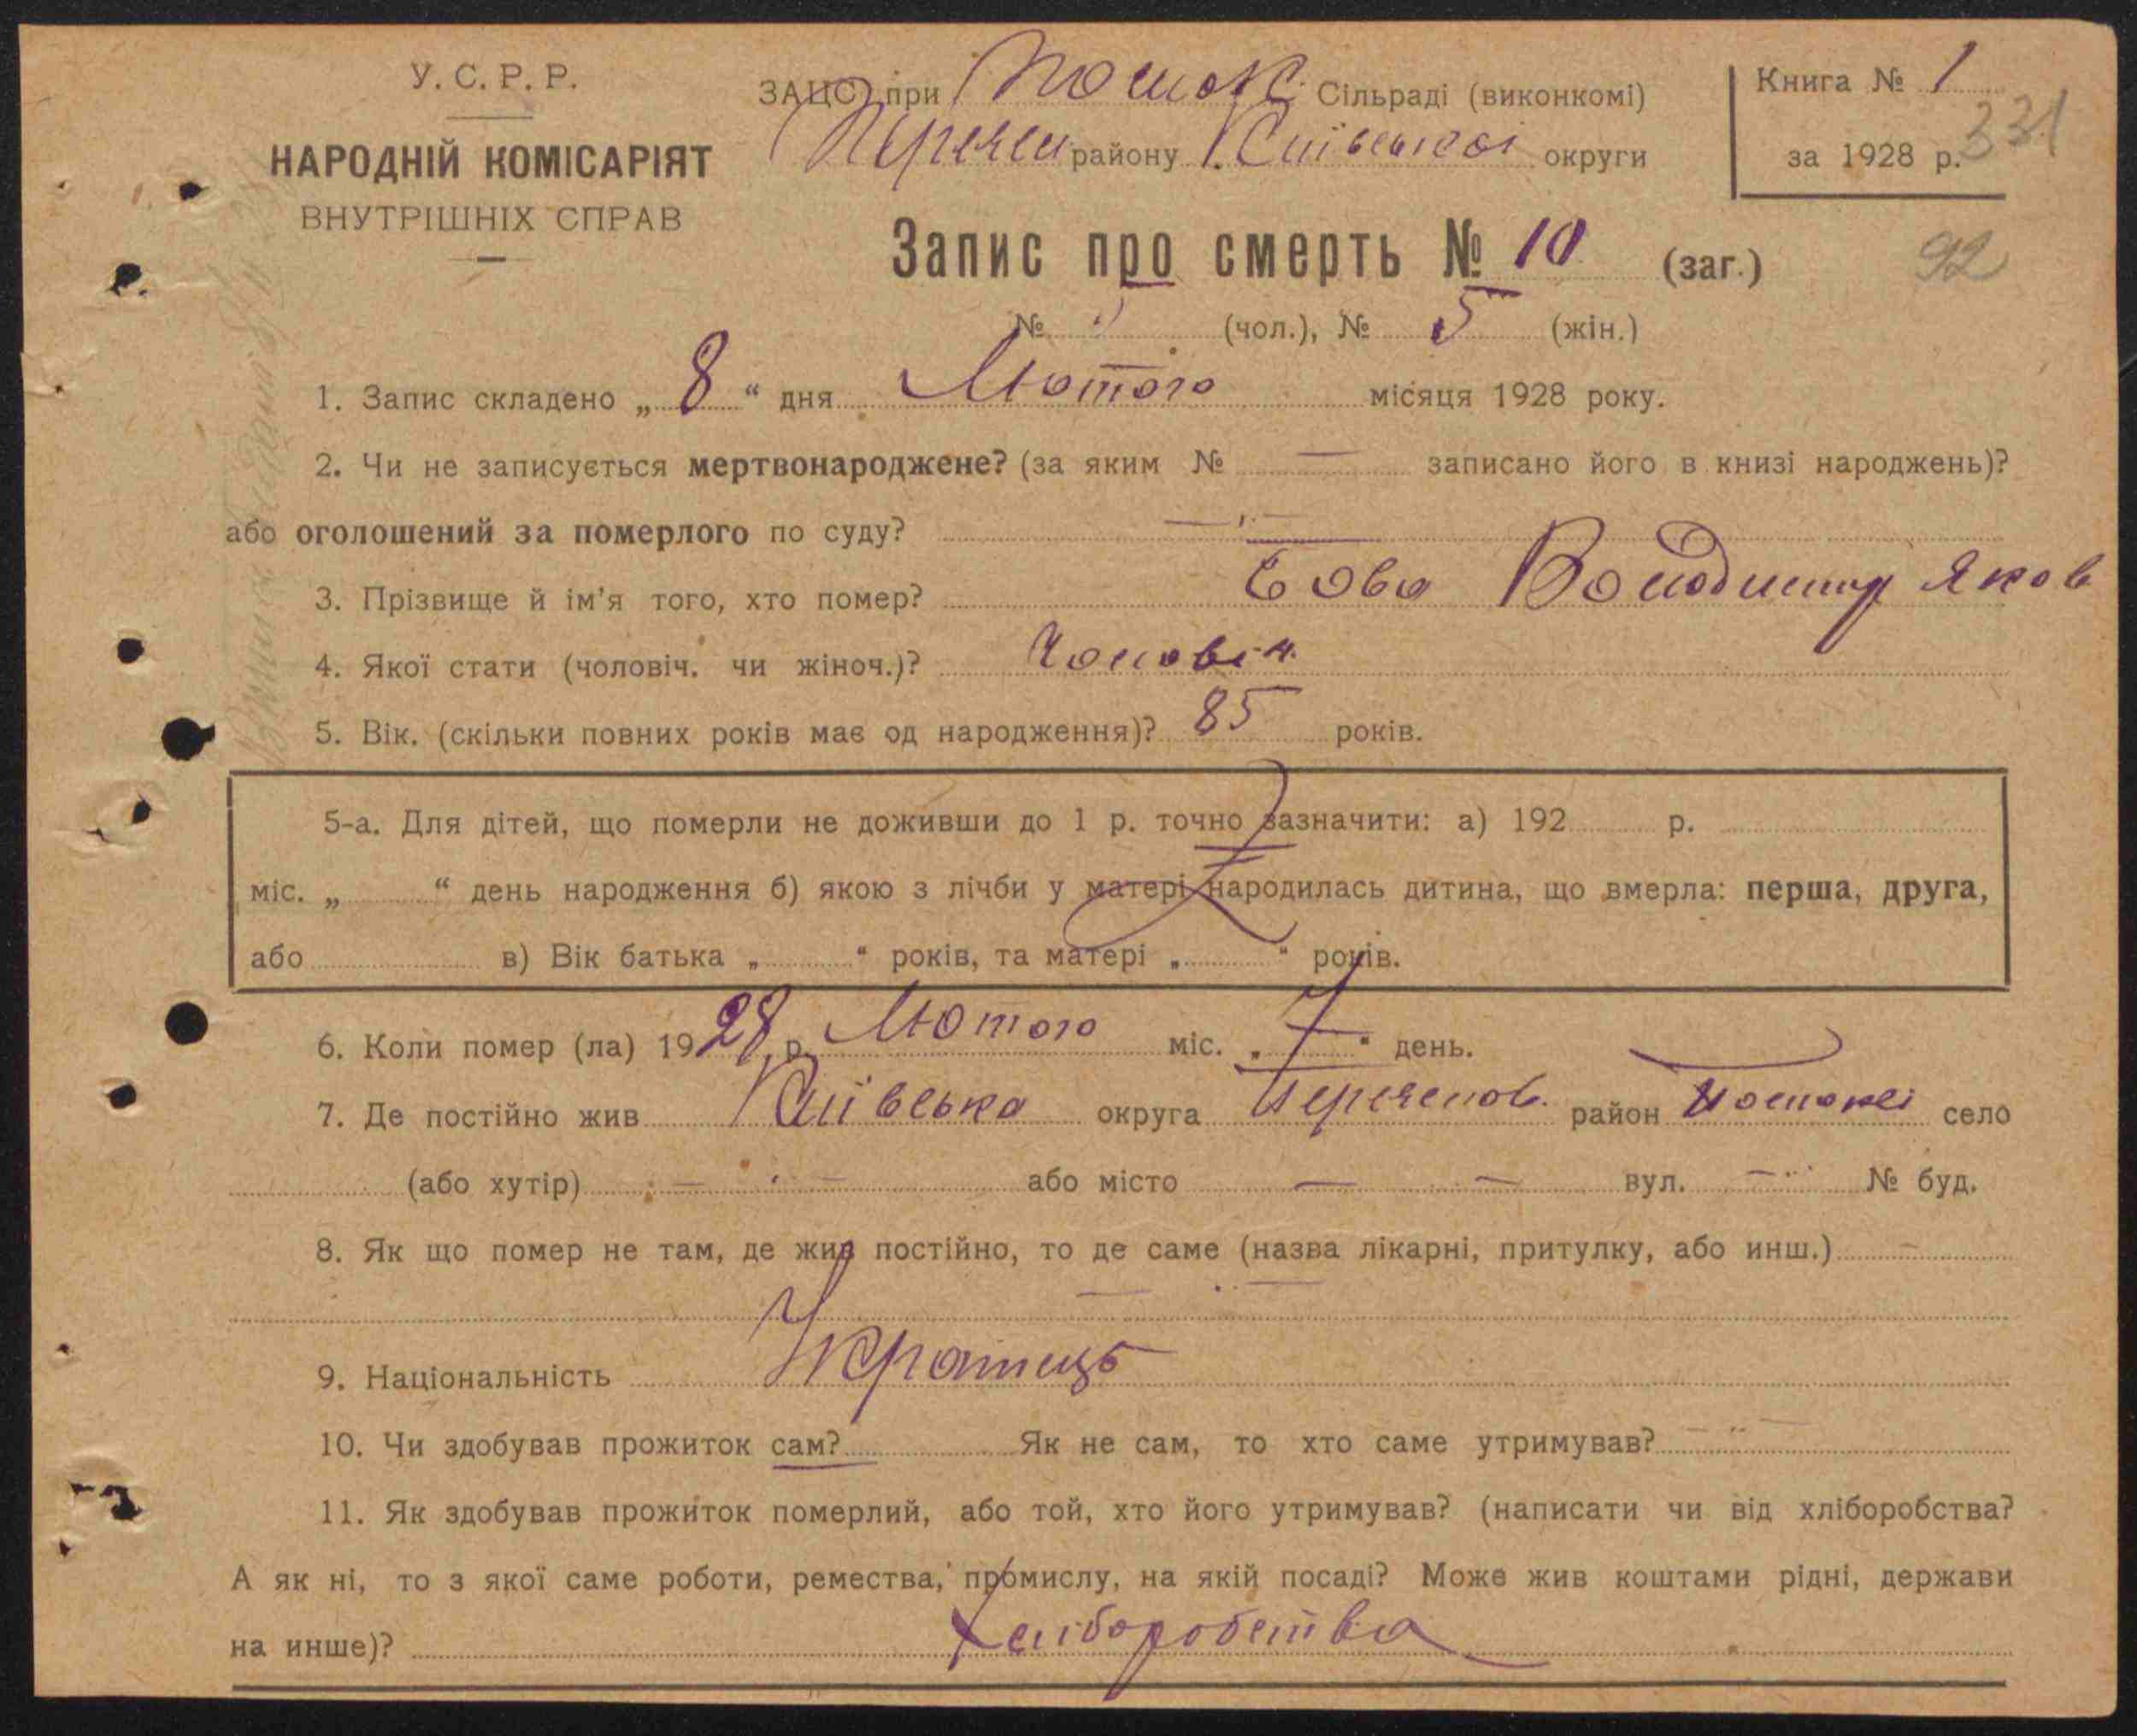 У. С. Р. Р.
НАРОДНІЙ КОМІСАРІЯТ
ВНУТРІШНІХ СПРАВ
ЗАЦС при Поток. Сільраді (виконкомі)
району Київської округи
Книга № 1
за 1928 р. 331
Запис про смерть № 10 (заг.)
92
№ 5 (чол.), № 5 (жін.)
1. Запис складено „ 8 “ дня Лютого місяця 1928 року.
2. Чи не записується мертвонароджене? (за яким № — записано його в книзі народжень)?
або оголошений за померлого по суду? —
3. Прізвище й ім'я того, хто помер? Бова Володимир Яков
4. Якої стати (чоловіч. чи жіноч.)? Чоловіч.
5. Вік. (скільки повних років має од народження)? 85 років.
5-а. Для дітей, що померли не доживши до 1 р. точно зазначити: а) 192 р.
міс. „ “ день народження б) якою з лічби у матері народилась дитина, що вмерла: перша, друга,
або в) Вік батька „ “ років, та матері „ “ років.
6. Коли помер (ла) 1928 р. Лютого міс. „ 7 “ день.
7. Де постійно жив Київська округа район Потоки село
(або хутір) — — або місто — — вул. — № буд.
8. Як що помер не там, де жив постійно, то де саме (назва лікарні, притулку, або инш.) —
— —
9. Національність Українець
10. Чи здобував прожиток сам? Як не сам, то хто саме утримував? —
11. Як здобував прожиток померлий, або той, хто його утримував? (написати чи від хліборобства?
А як ні, то з якої саме роботи, ремества, промислу, на якій посаді? Може жив коштами рідні, держави
на инше)? Хліборобства